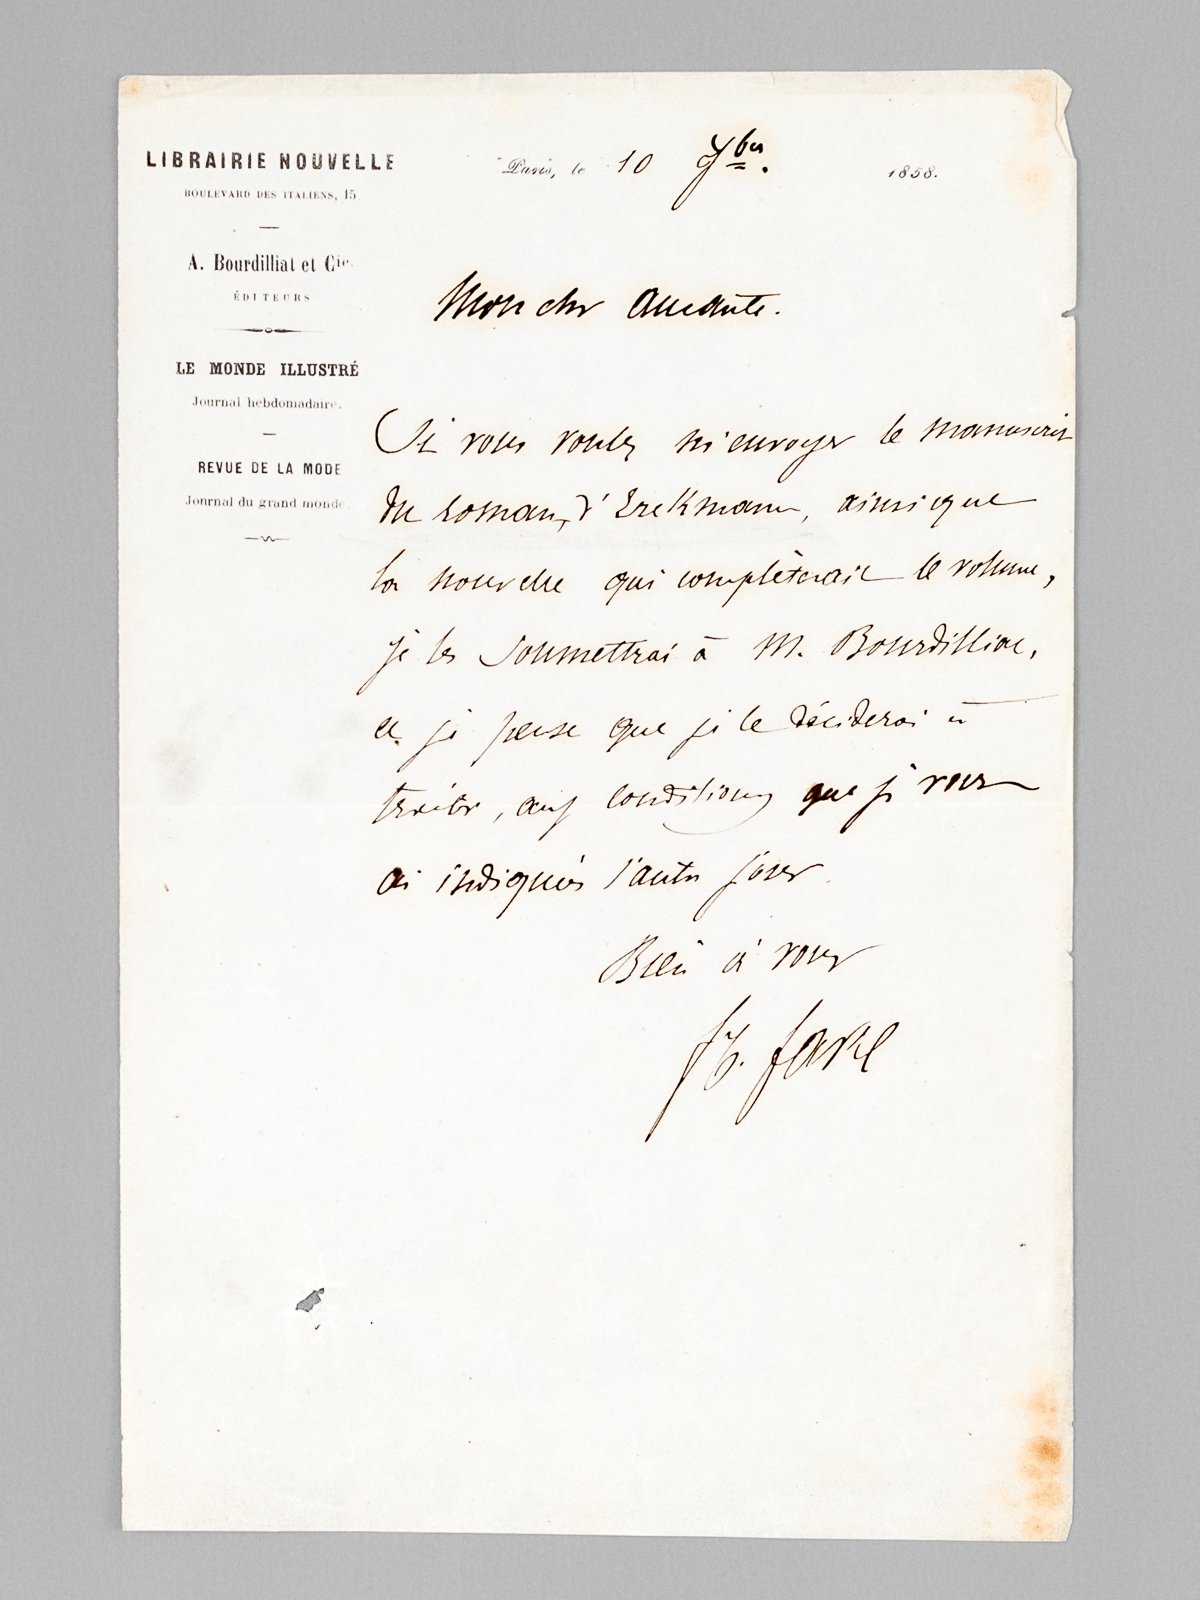 LIBRAIRIE NOUVELLE
BOULEVARD DES ITALIENS, 15
A. Bourdilliat et Cie.
ÉDITEURS
LE MONDE ILLUSTRÉ
Journal hebdomadaire.
REVUE DE LA MODE
Journal du grand monde
Paris, le 10 7bre. 1858.
Mon cher Audante.
Si vous voulez m'envoyer le manuscrit
du roman d'Erckmann, ainsi que
la nouvelle qui complèterait le volume,
je les soumettrai à M. Bourdilliat,
et je pense que je le déciderai à
traiter, aux conditions que je vous
ai indiquées l'autre jour
Bien à vous